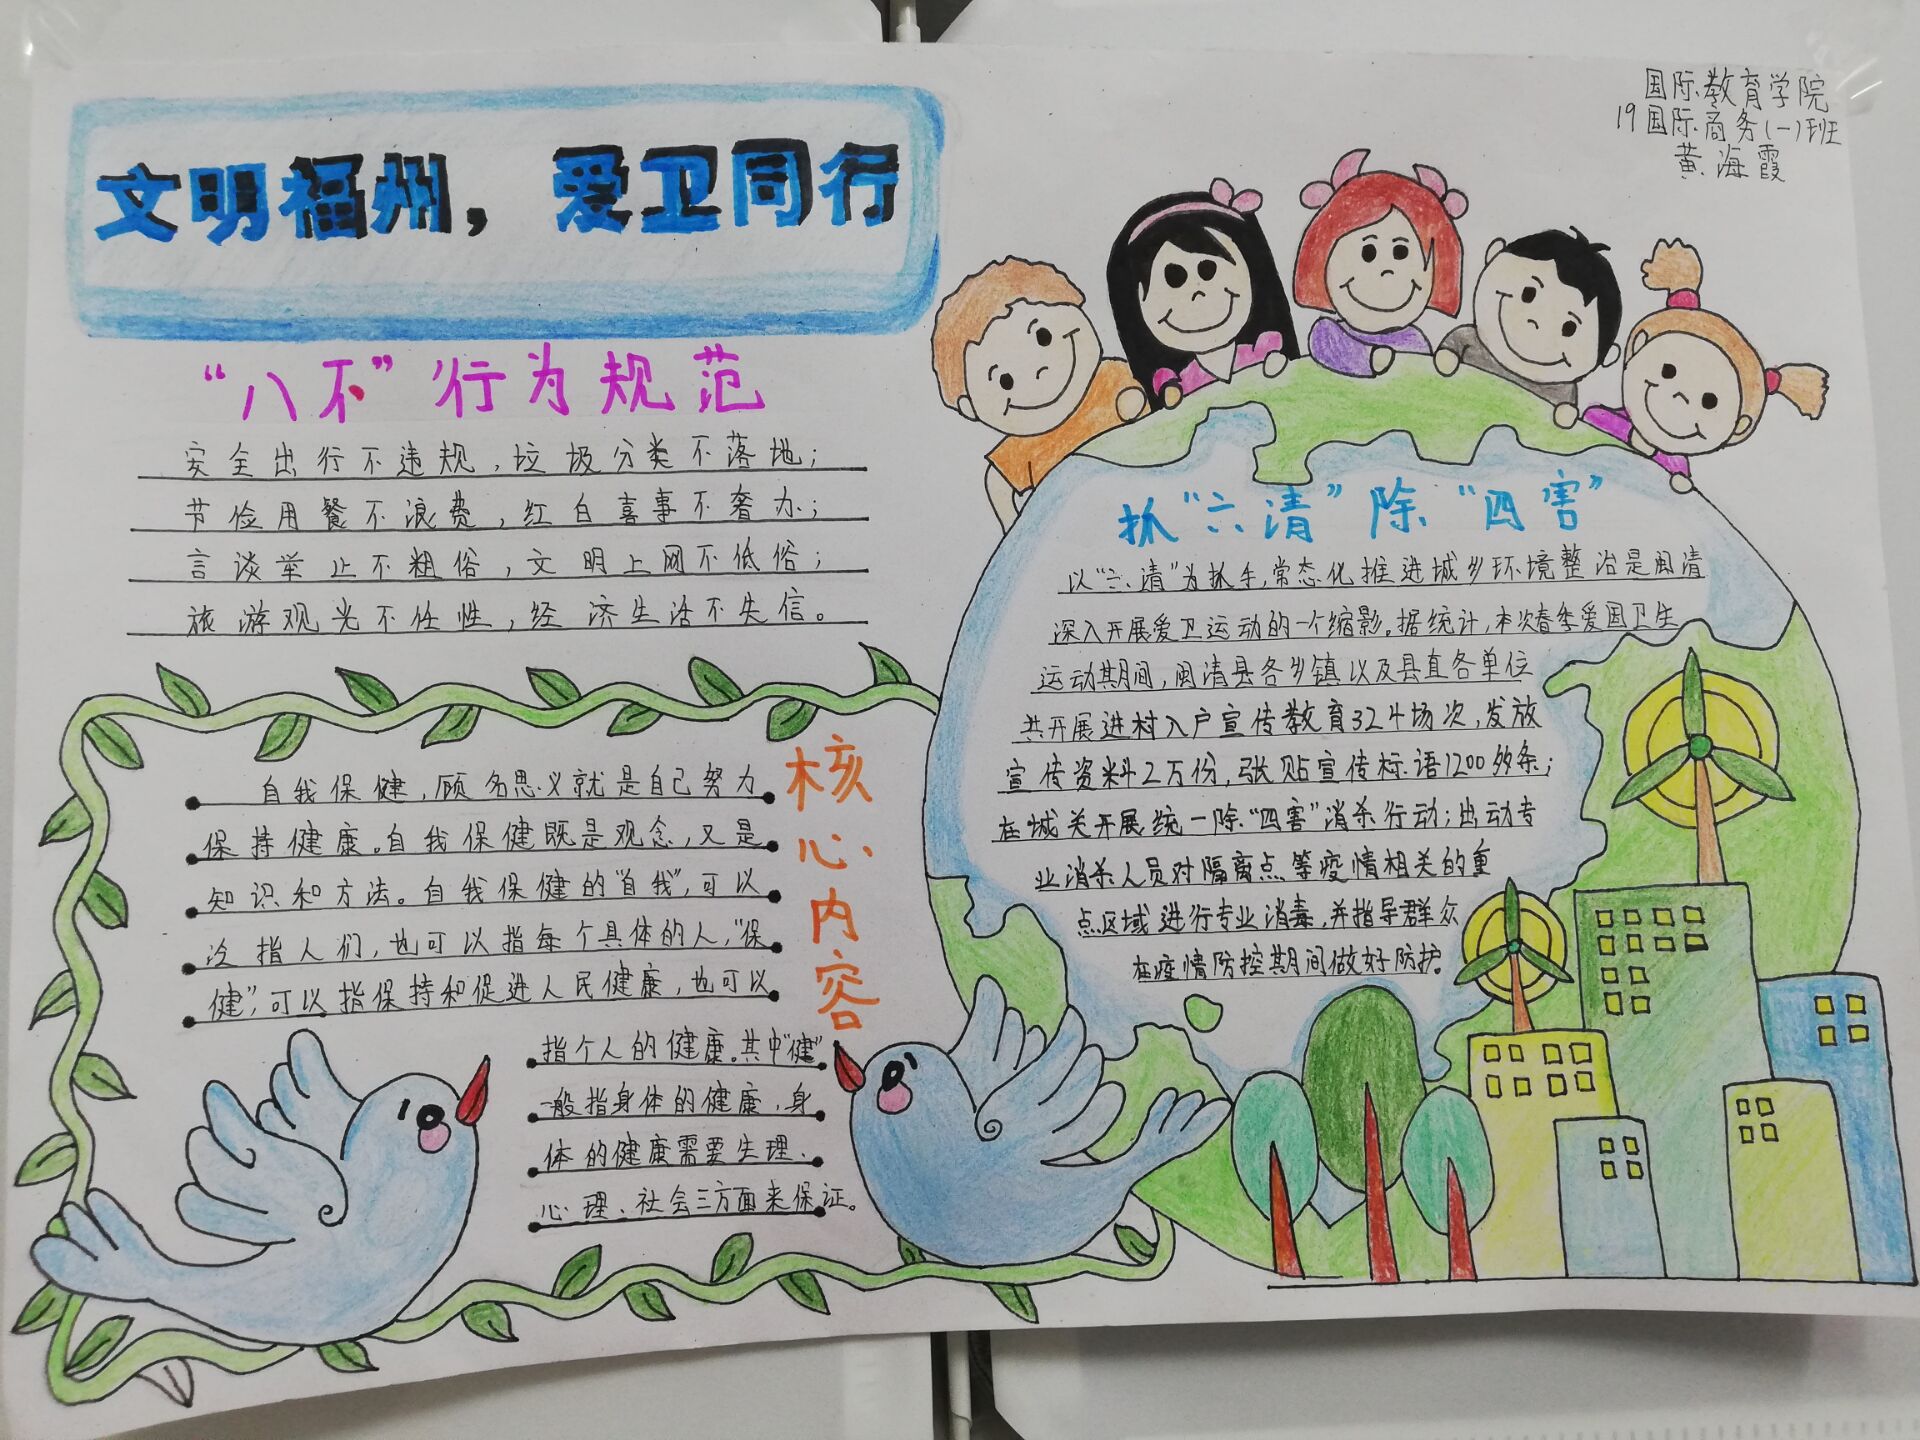 文明福州，爱卫同行
国际教育学院
19国际商务(一)班
黄海霞
“八不”行为规范
安全出行不违规，垃圾分类不落地；
节俭用餐不浪费，红白喜事不奢办；
言谈举止不粗俗，文明上网不低俗；
旅游观光不任性，经济生活不失信。
核心内容
自我保健，顾名思义就是自己努力
保持健康。自我保健既是观念，又是
知识和方法。自我保健的“自我”，可以
泛指人们，也可以指每个具体的人，“保
健”，可以指保持和促进人民健康，也可以
指个人的健康。其中“健”
一般指身体的健康，身
体的健康需要生理、
心理、社会三方面来保证。
抓“六清”除“四害”
以“六清”为抓手，常态化推进城乡环境整治是闽清
深入开展爱卫运动的一个缩影。据统计，本次春季爱国卫生
运动期间，闽清县各乡镇以及县直各单位
共开展进村入户宣传教育324场次，发放
宣传资料2万份，张贴宣传标语1200多条；
在城关开展统一除“四害”消杀行动；出动专
业消杀人员对隔离点等疫情相关的重
点区域进行专业消毒，并指导群众
在疫情防控期间做好防护。